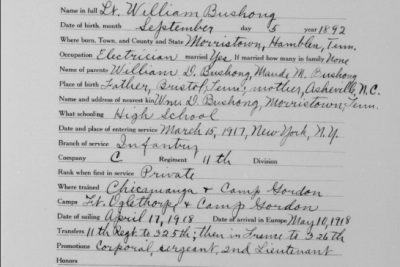 Name in full Lt. William Bushong
Date of birth. month September day 5 year 1892
Where born, Town, and County and State Morristown, Hamblen, Tenn.
Occupation Electrician married Yes If married how many in family None
Name of parents William D. Bushong, Maude M. Bushong
Place of birth Father, Bristol, Tenn; mother, Asheville, N.C.
Name and address of nearest kin Wm. D. Bushong, Morristown, Tenn.
What schooling High School
Date and place of entering service March 15, 1917, New York, N.Y.
Branch of service Infantry
Company C Regiment 11th Division
Rank when first in service Private
Where trained Chicamauga & Camp Gordon
Camps Ft. Oglethorpe & Camp Gordon
Date of sailing April 17, 1918 Date of arrival in Europe May 10, 1918
Transfers 11th Regt. to 325th; then in France to 326th
Promotions Corporal, sergeant, 2nd Lieutenant
Honors